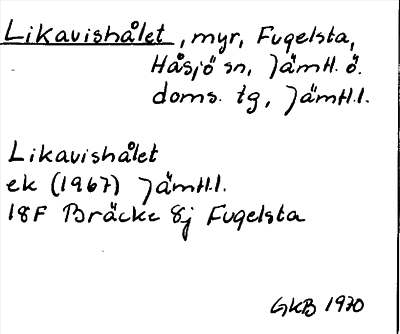 Likavishålet, myr, Fugelsta,
Håsjö sn, Jämtl. ö.
doms. tg, Jämtl.l.
Likavishålet
ek (1967) Jämtl.l.
18F Bräcke 8j Fugelsta
GKB 1970